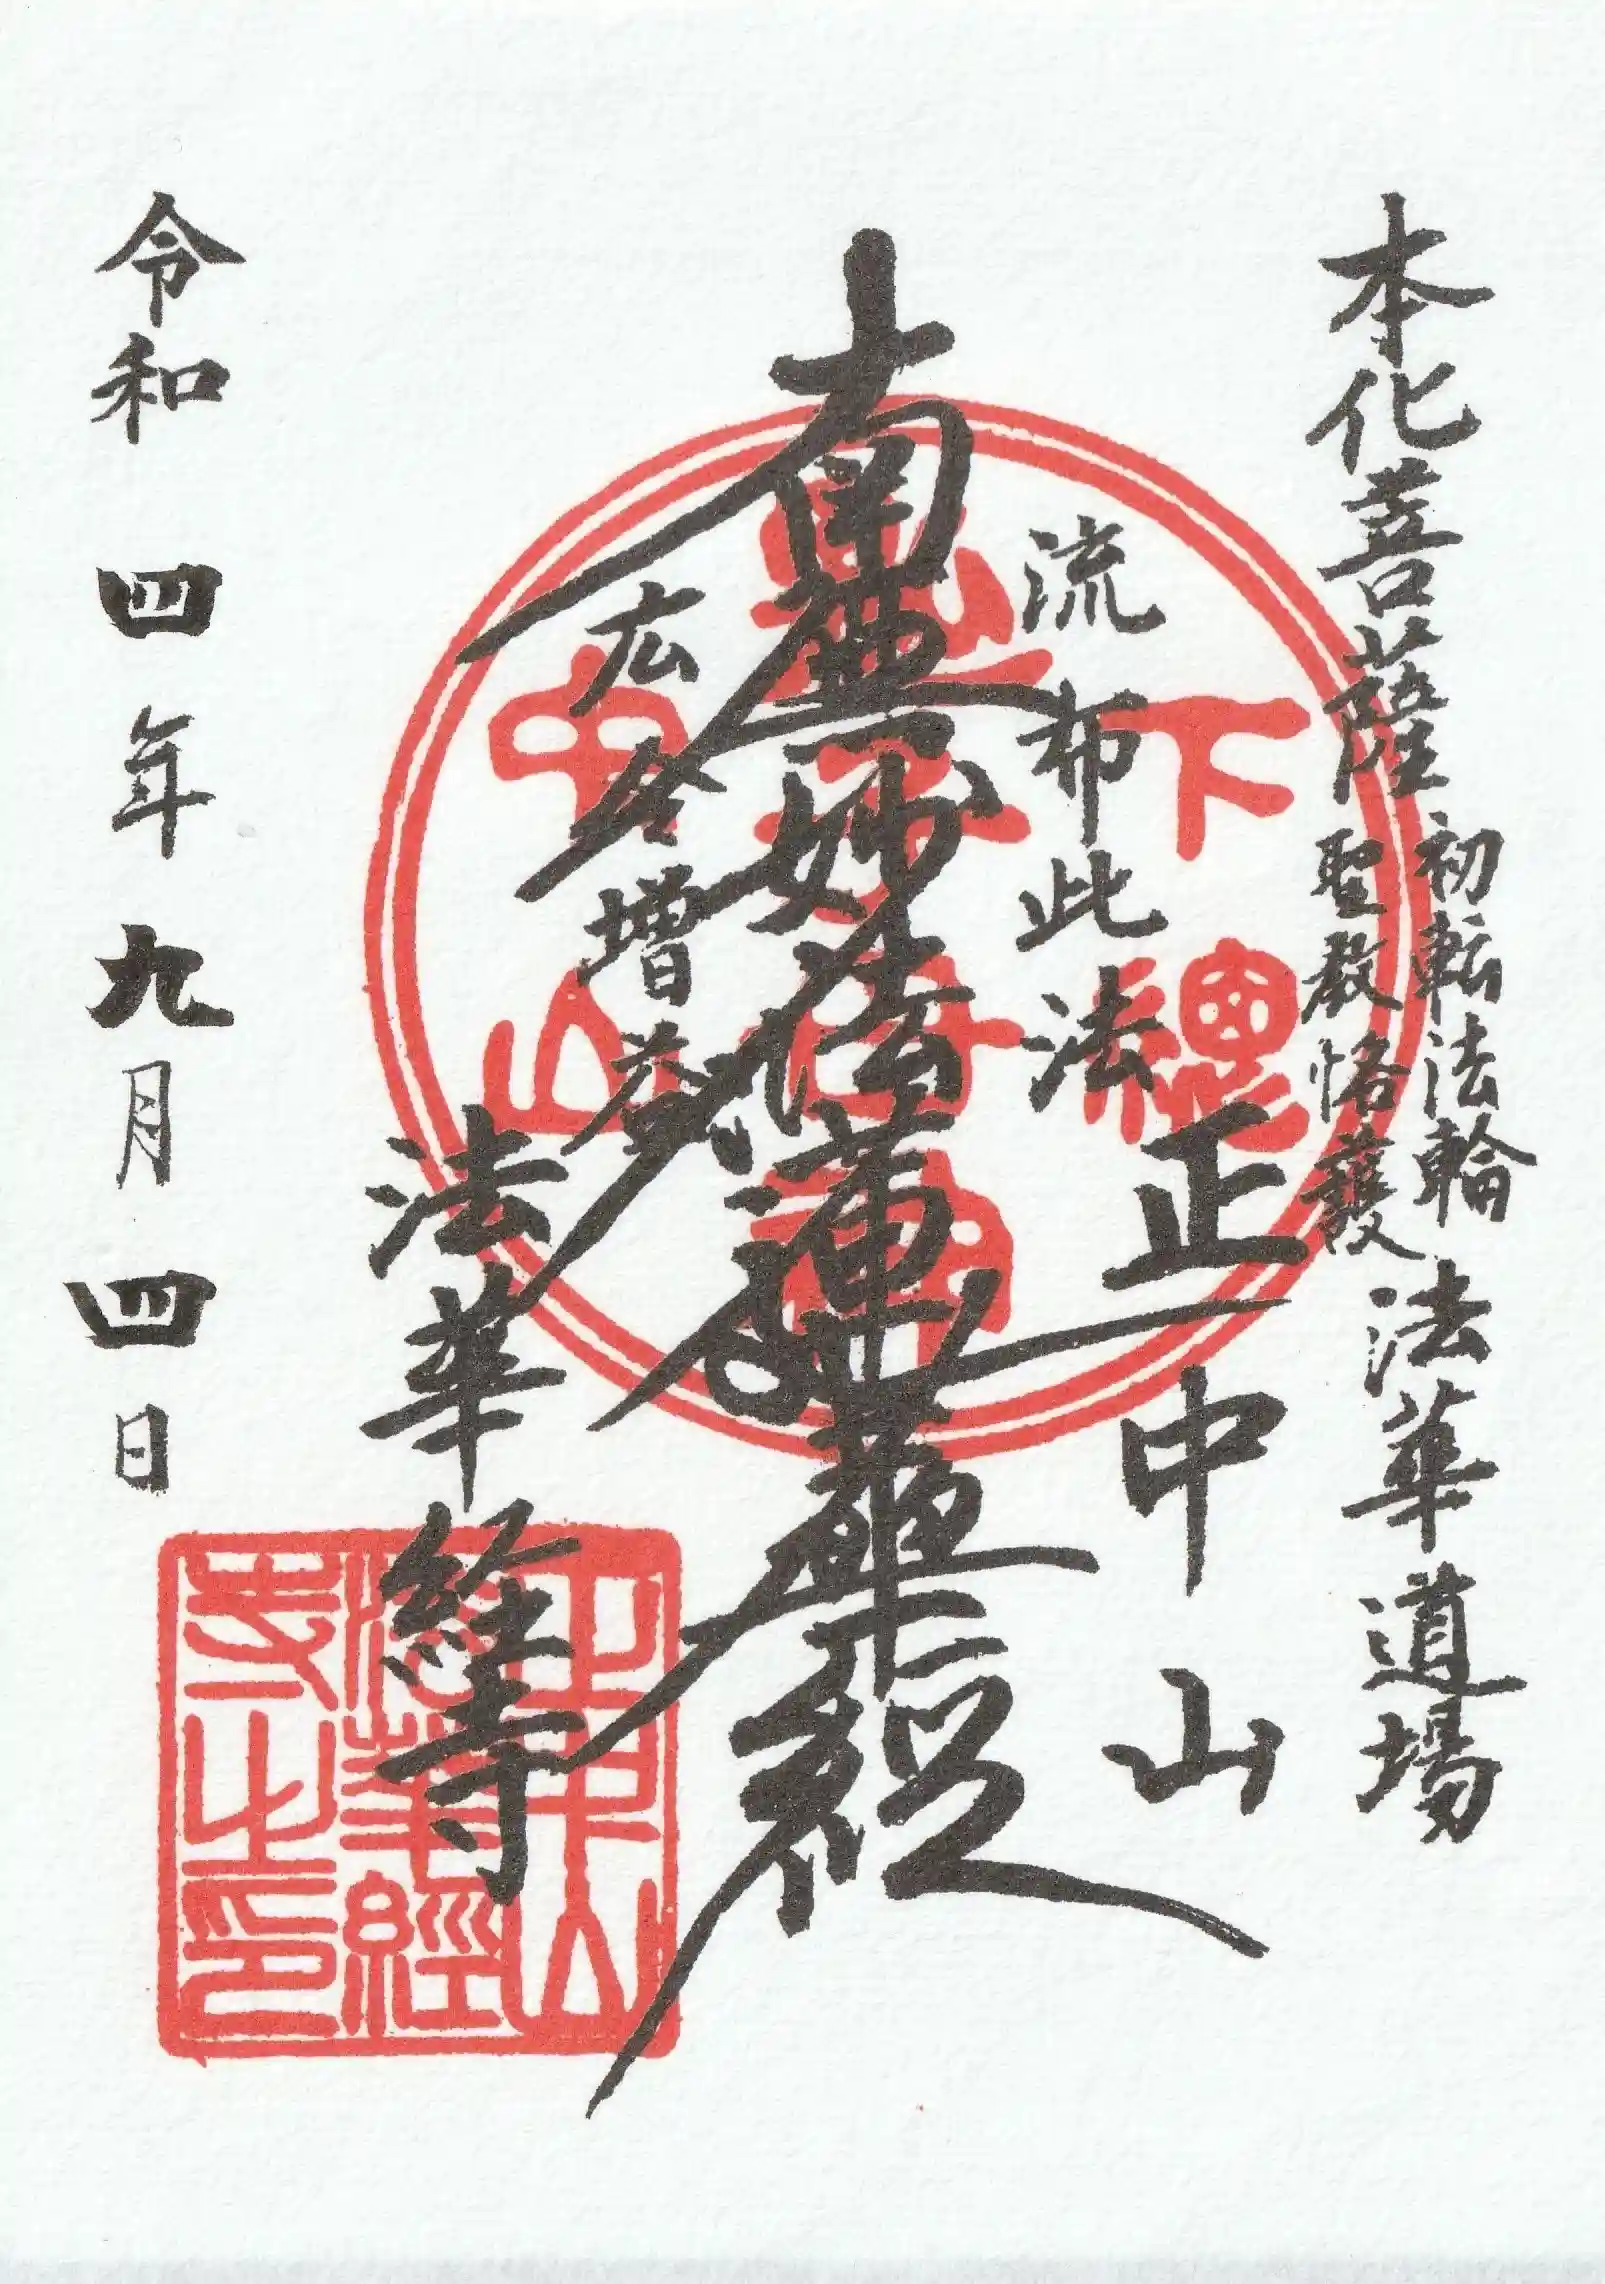 本化菩薩
初転法輪
聖教格護
法華道場
正中山
流布此法
南無妙法蓮華経
広令増益
法華経寺
令和四年九月四日
下総
中山
正中山
法華經
寺之印